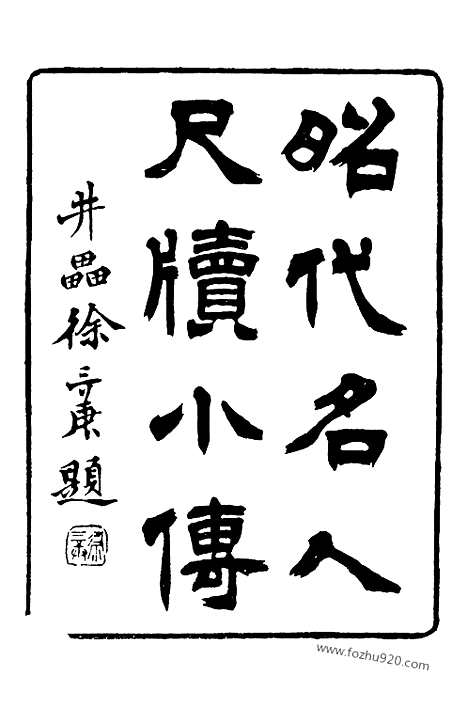 昭代名人
尺牘小傳
井罍徐三庚題
www.fozhu920.com